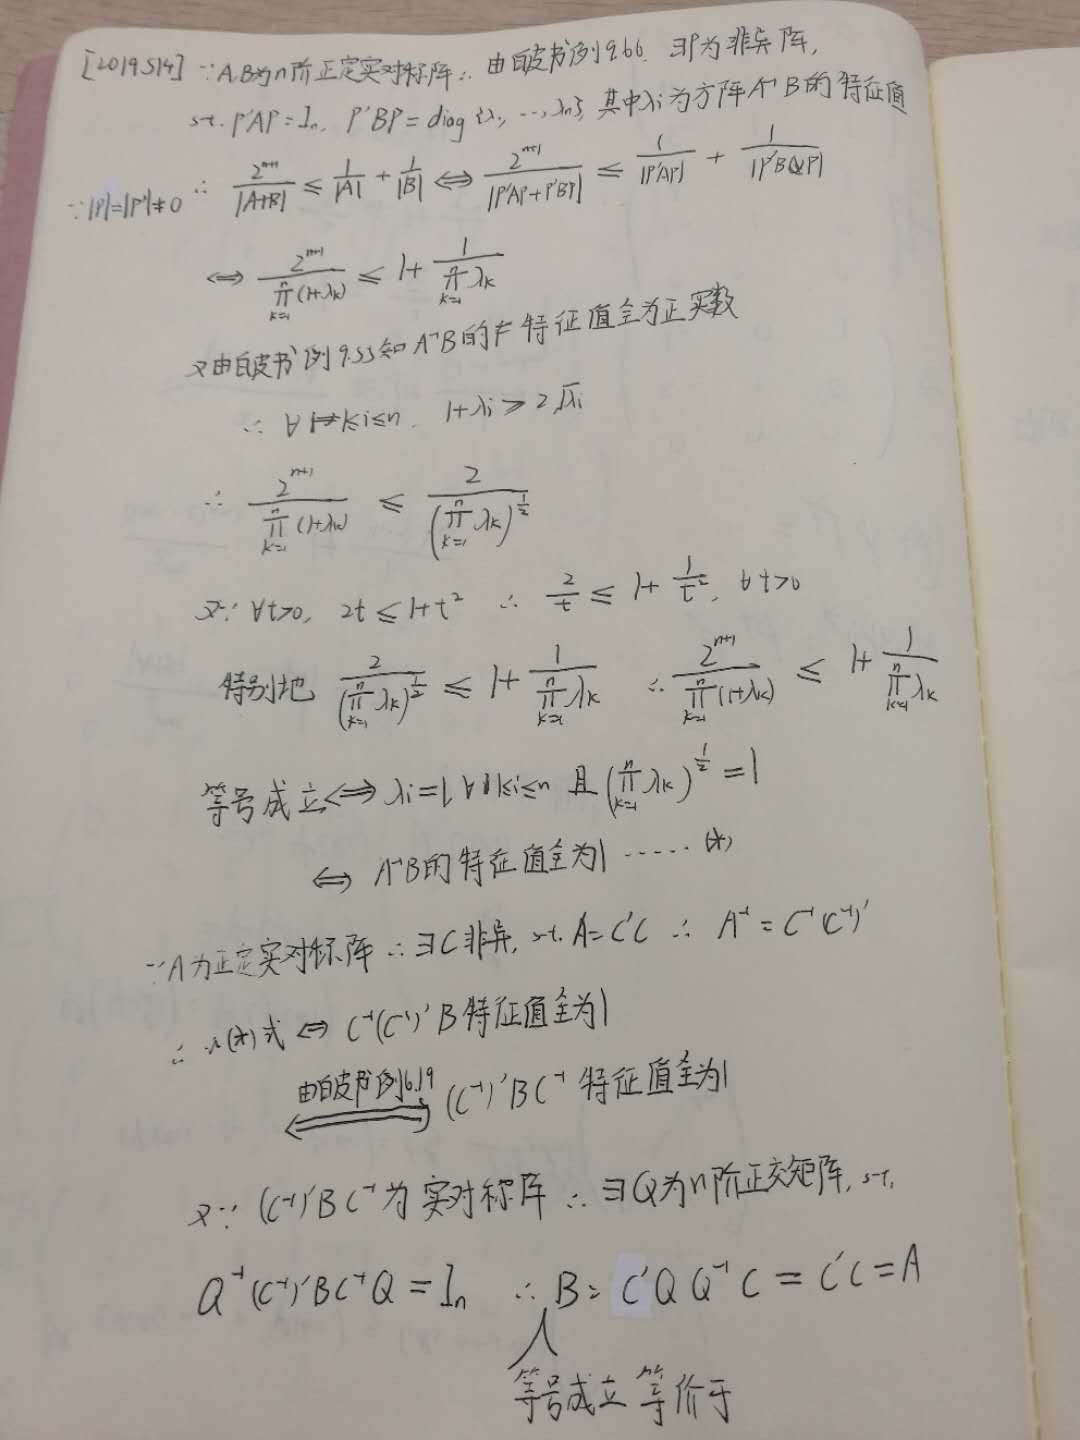 [2019S14] ∵A,B为n阶正定实对称阵∴ 由白皮书例9.66. ∃P为非异阵,
s.t. P'AP=In, P'BP=diag{λ1, ..., λn}, 其中λi为方阵A⁻¹B的特征值
∵|P|=|P'|≠0 ∴ 2^{n+1}/|A+B| ≤ 1/|A| + 1/|B| ⟺ 2^{n+1}/|P'AP+P'BP| ≤ 1/|P'AP| + 1/|P'BP|
⟺ 2^{n+1}/∏_{k=1}^{n}(1+λk) ≤ 1+ 1/∏_{k=1}^{n}λk
又由白皮书例9.55知A⁻¹B的特征值全为正实数
∴ ∀1≤i≤n, 1+λi ≥ 2√λi
∴ 2^{n+1}/∏_{k=1}^{n}(1+λk) ≤ 2/(∏_{k=1}^{n}λk)^{1/2}
又∵ ∀t>0, 2t ≤ 1+t² ∴ 2/t ≤ 1+ 1/t², ∀t>0
特别地 2/(∏_{k=1}^{n}λk)^{1/2} ≤ 1+ 1/∏_{k=1}^{n}λk ∴ 2^{n+1}/∏_{k=1}^{n}(1+λk) ≤ 1+ 1/∏_{k=1}^{n}λk
等号成立⟺ λi=1, ∀1≤i≤n 且 (∏_{k=1}^{n}λk)^{1/2} =1
⟺ A⁻¹B的特征值全为1 ......(*)
∵A为正定实对称阵 ∴∃C非异, s.t. A=C'C ∴ A⁻¹=C⁻¹(C⁻¹)'
∴ (*)式 ⟺ C⁻¹(C⁻¹)'B特征值全为1
由白皮书例6.19 ⟺ (C⁻¹)'BC⁻¹特征值全为1
又∵ (C⁻¹)'BC⁻¹为实对称阵 ∴∃Q为n阶正交矩阵, s.t.
Q⁻¹(C⁻¹)'BC⁻¹Q=In ∴B=C'QQ⁻¹C=C'C=A
等号成立等价于